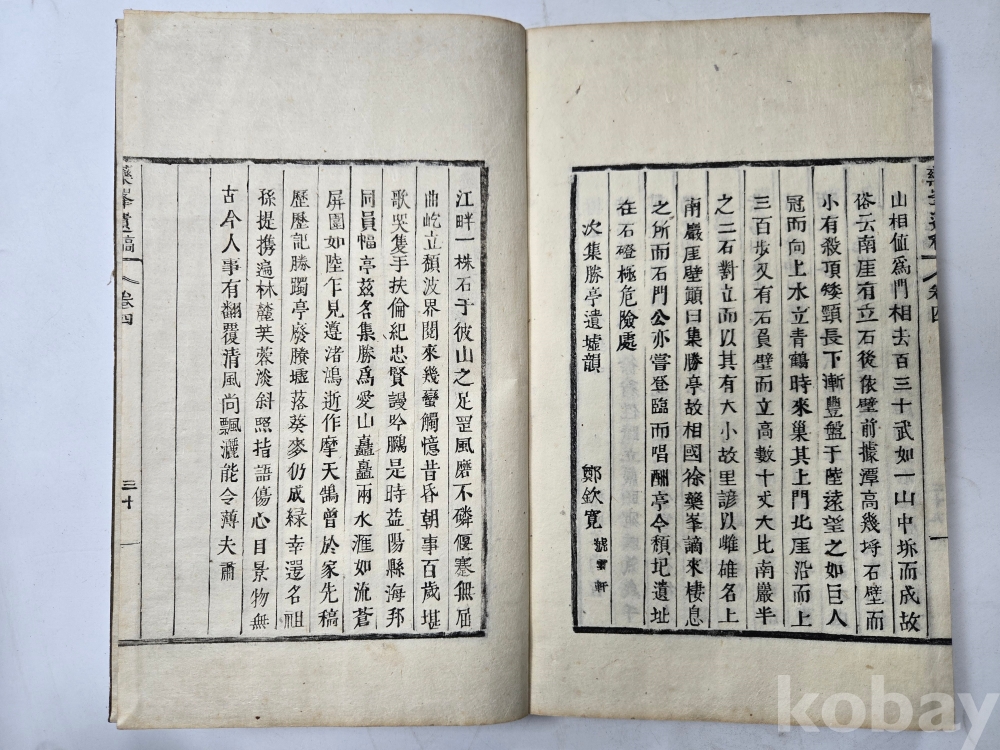 山相値爲門相去百三十武如一山中坼而成故
俗云南厓有立石後依壁前據潭高幾埒石壁而
小有殺頂矮頸長下漸豐盤于陸遠望之如巨人
冠而向上水立青鶴時來巢其上門北厓沿而上
三百步又有石負壁而立高數十丈大比南巖半
之二石對立而以其有大小故里諺以雌雄名上
南巖厓壁顚曰集勝亭故相國徐藥峯謫來棲息
之所而石門公亦嘗登臨而唱酬亭今頹圮遺址
在石磴極危險處
次集勝亭遺墟韻 鄭欽寬 號雲軒
江畔一株石于彼山之足罡風磨不磷偃蹇無屈
曲屹立頹波界閱來幾蠻觸憶昔昏朝事百歲堪
歌哭隻手扶倫紀忠賢謾吟鵩是時益陽縣海邦
同員幅亭玆名集勝爲愛山矗矗兩水滙如流蒼
屏圍如陸乍見遵渚鴻逝作摩天鵠曾於家先稿
歷歷記勝躅亭廢賸墟落葵麥仍成緑幸還名祖
孫提携遍林麓芙蓉淡斜照指語傷心目景物無
古今人事有翻覆清風尚飄灑能令薄夫肅
藥峯遺稿 卷四 三十
kobay